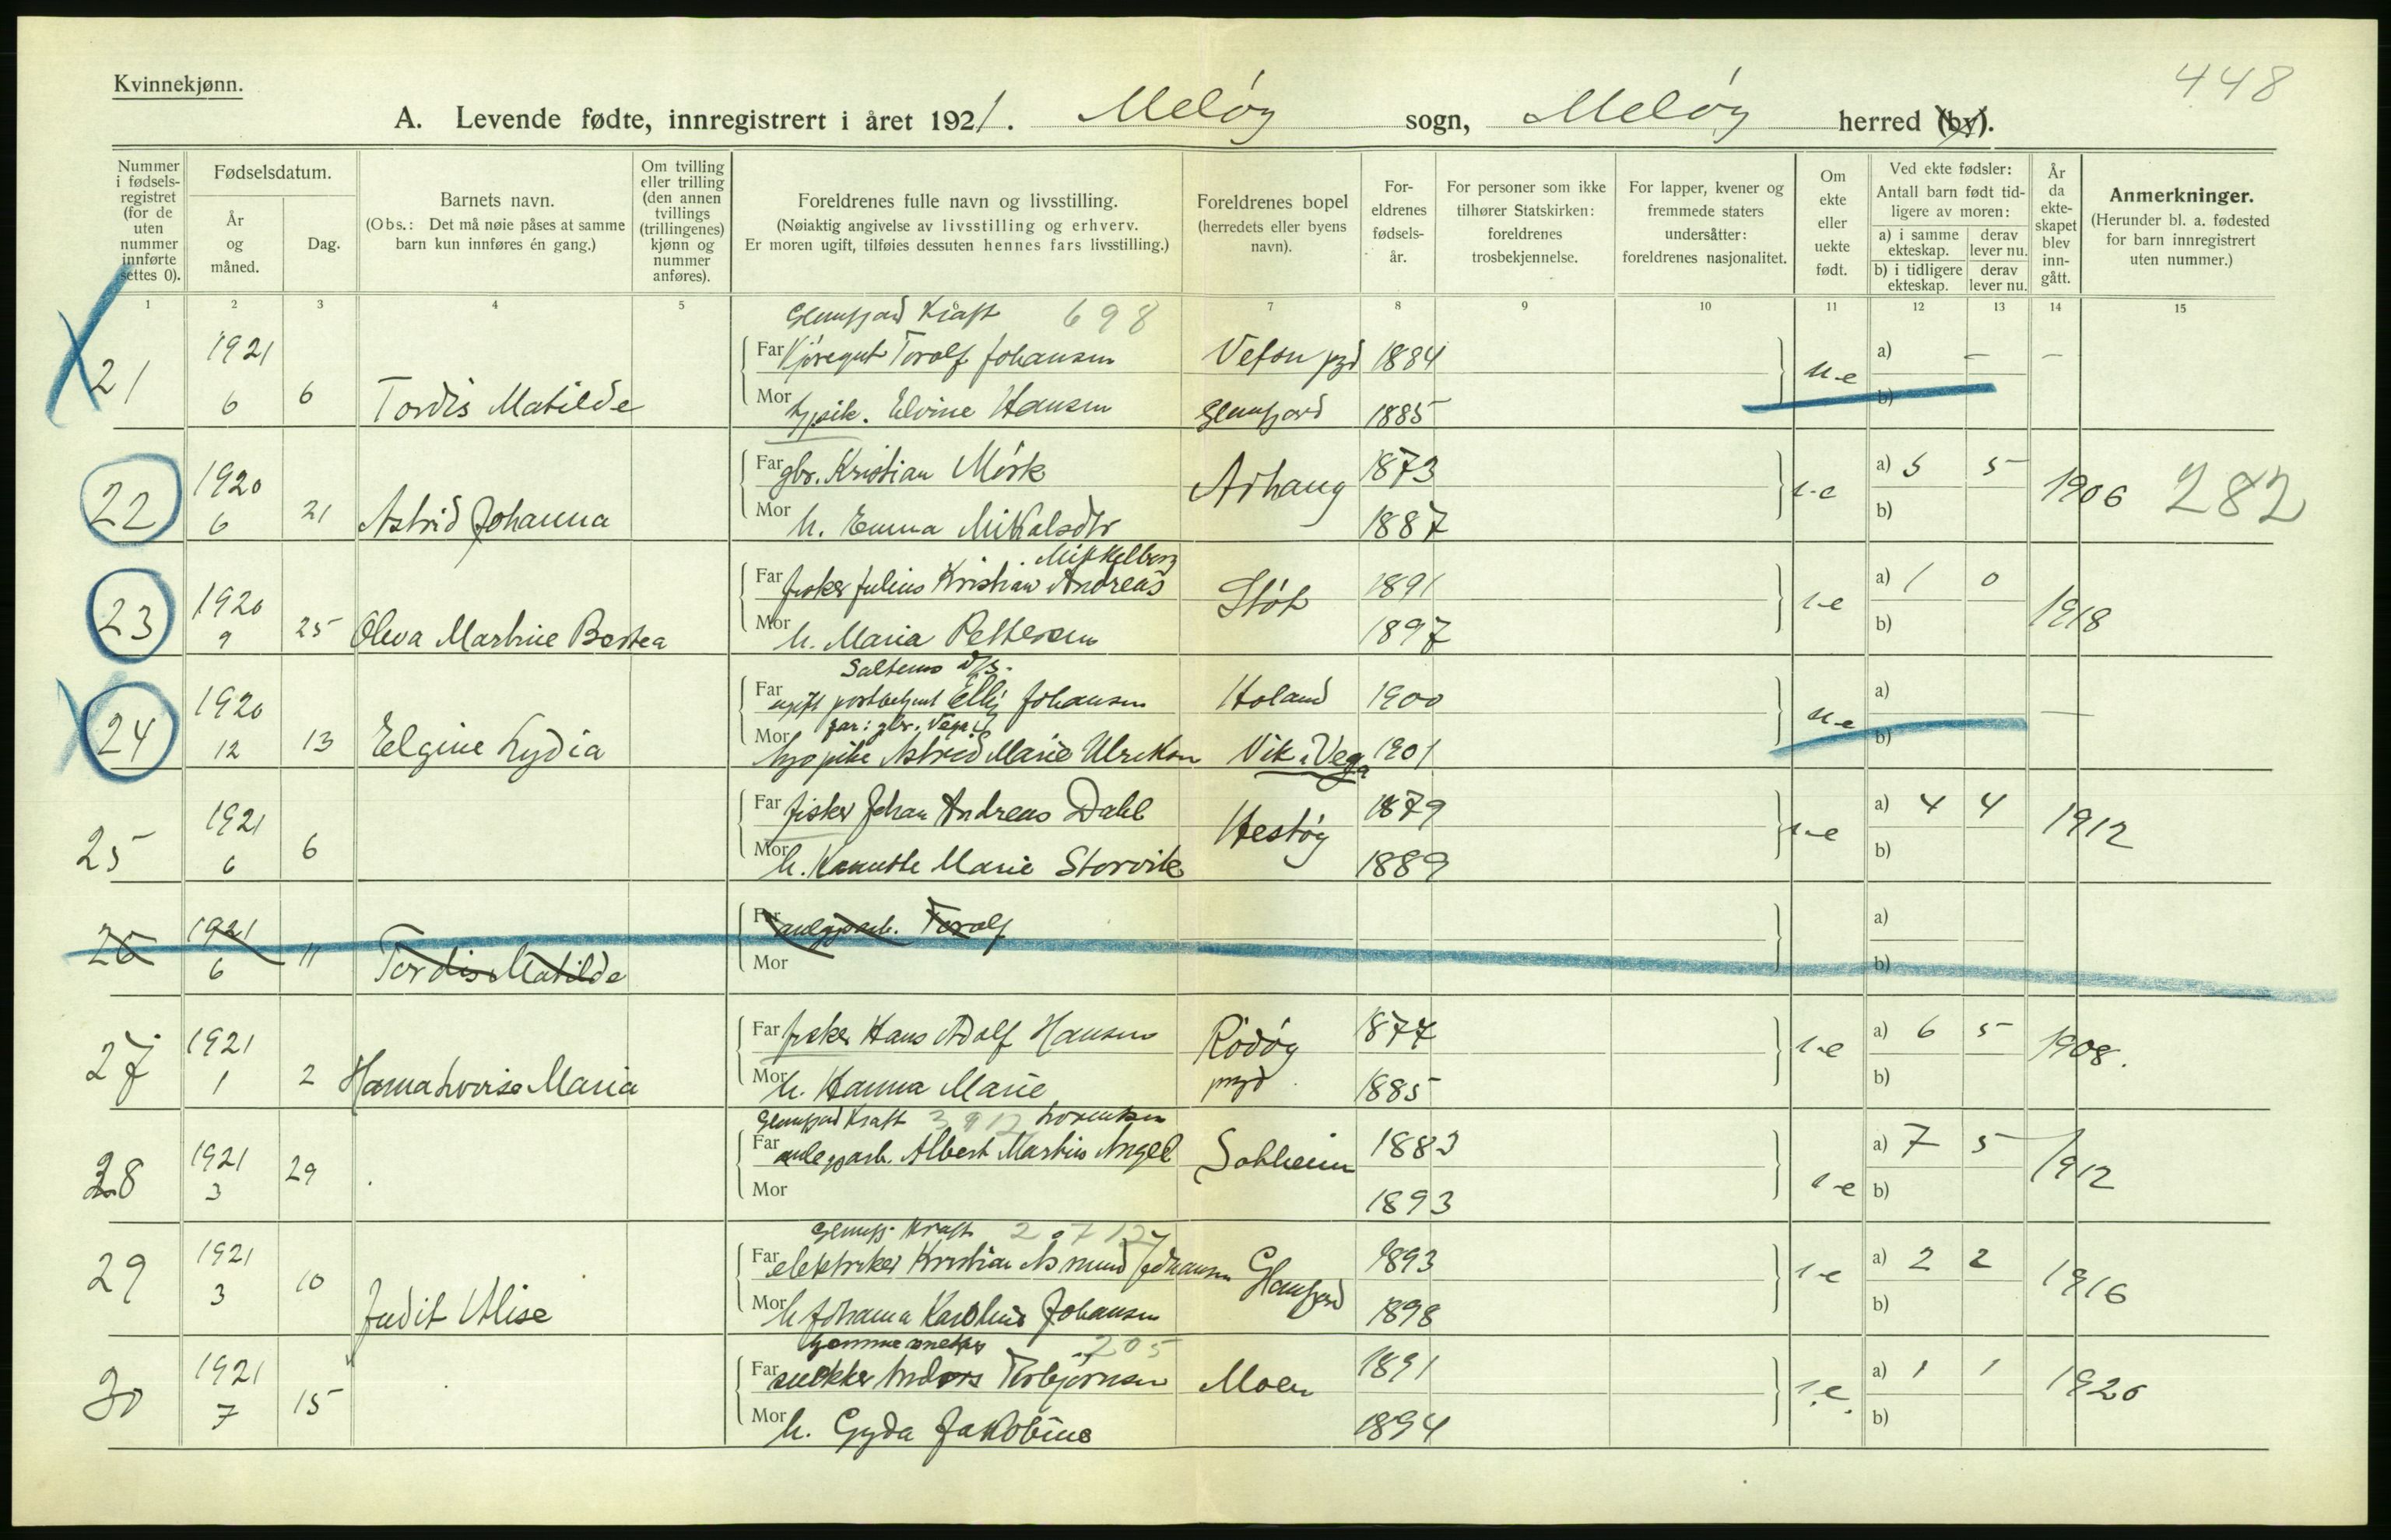 448
Kvinnekjønn.
A. Levende fødte, innregistrert i året 1921. Meløy sogn, Meløy herred (by).
Nummer i fødsels-registret (for de uten nummer innførte settes 0).
Fødselsdatum.
År og måned.
Dag.
Barnets navn.
(Obs.: Det må nøie påses at samme barn kun innføres én gang.)
Om tvilling eller trilling (den annen tvillings (trillingenes) kjønn og nummer anføres).
Foreldrenes fulle navn og livsstilling.
(Nøiaktig angivelse av livsstilling og erhverv. Er moren ugift, tilføies dessuten hennes fars livsstilling.)
Foreldrenes bopel (herredets eller byens navn).
For-eldrenes fødsels-år.
For personer som ikke tilhører Statskirken: foreldrenes trosbekjennelse.
For lapper, kvener og fremmede staters undersåtter: foreldrenes nasjonalitet.
Om ekte eller uekte født.
Ved ekte fødsler: Antall barn født tid-ligere av moren:
a) i samme ekteskap. derav lever nu.
b) i tidligere ekteskap. derav lever nu.
År da ekte-skapet blev inn-gått.
Anmerkninger.
(Herunder bl. a. fødested for barn innregistrert uten nummer.)
1 2 3 4 5 7 8 9 10 11 12 13 14 15
Glomfjord Kraft 698
21 1921 6 6 Tordis Matilde
Far Kjøregut Torolf Johansen Vefsn pgd 1884 u-e a) — —
Mor Elvine Hansen Glomfjord 1885 b)
22 1920 6 21 Astrid Johanna
Far gbr. Kristian Mörk Arhaug 1873 e-e a) 5 5 1906 282
Mor h. Emma Mikalsdtr 1887 b)
Mikkelborg
23 1920 9 25 Oleva Martine Bertea
Far fisker Julius Kristian Andreas Støt 1891 e-e a) 1 0 1918
Mor h. Maria Pettersen 1897 b)
Saltens D/S.
24 1920 12 13 Elgine Lydia
Far ugift postbetjent Johansen Holand 1900 u-e a) —
far: gbr. Vega
Mor Astrid Marie Ulriksen Vik i Vega 1901 b)
25 1921 6 6
Far fisker Johan Andreas Dahl Hestøy 1879 e-e a) 4 4 1912
Mor h. Marie Storvik 1889 b)
26 1921 6 11 Tordis Matilde
Far anlegsarb. Torolf a)
Mor b)
27 1921 1 2 Hanna Lovise Maria
Far fisker Hans Adolf Hansen Rødøy pgd 1877 e-e a) 6 5 1908.
Mor h. Hanna Marie 1885 b)
Glomfjord Kraft 3912 Lorentsen
28 1921 3 29
Far anlegsarb. Albert Martin Angel Solheim 1883 e-e a) 7 5 1912
Mor 1893 b)
Glomfj. Kraft
29 1921 3 10 Judit Alise
Far elektriker Kristian Asmund Johansen Glomfjord 1893 e-e a) 2 2 1916
Mor h. Johanna Karoline Johansen 1898 b)
205
30 1921 7 15
Far snekker Anders Torbjørnsen Moen 1891 e.e. a) 1 1 1920
Mor h. Gyda Jakobine 1894 b)